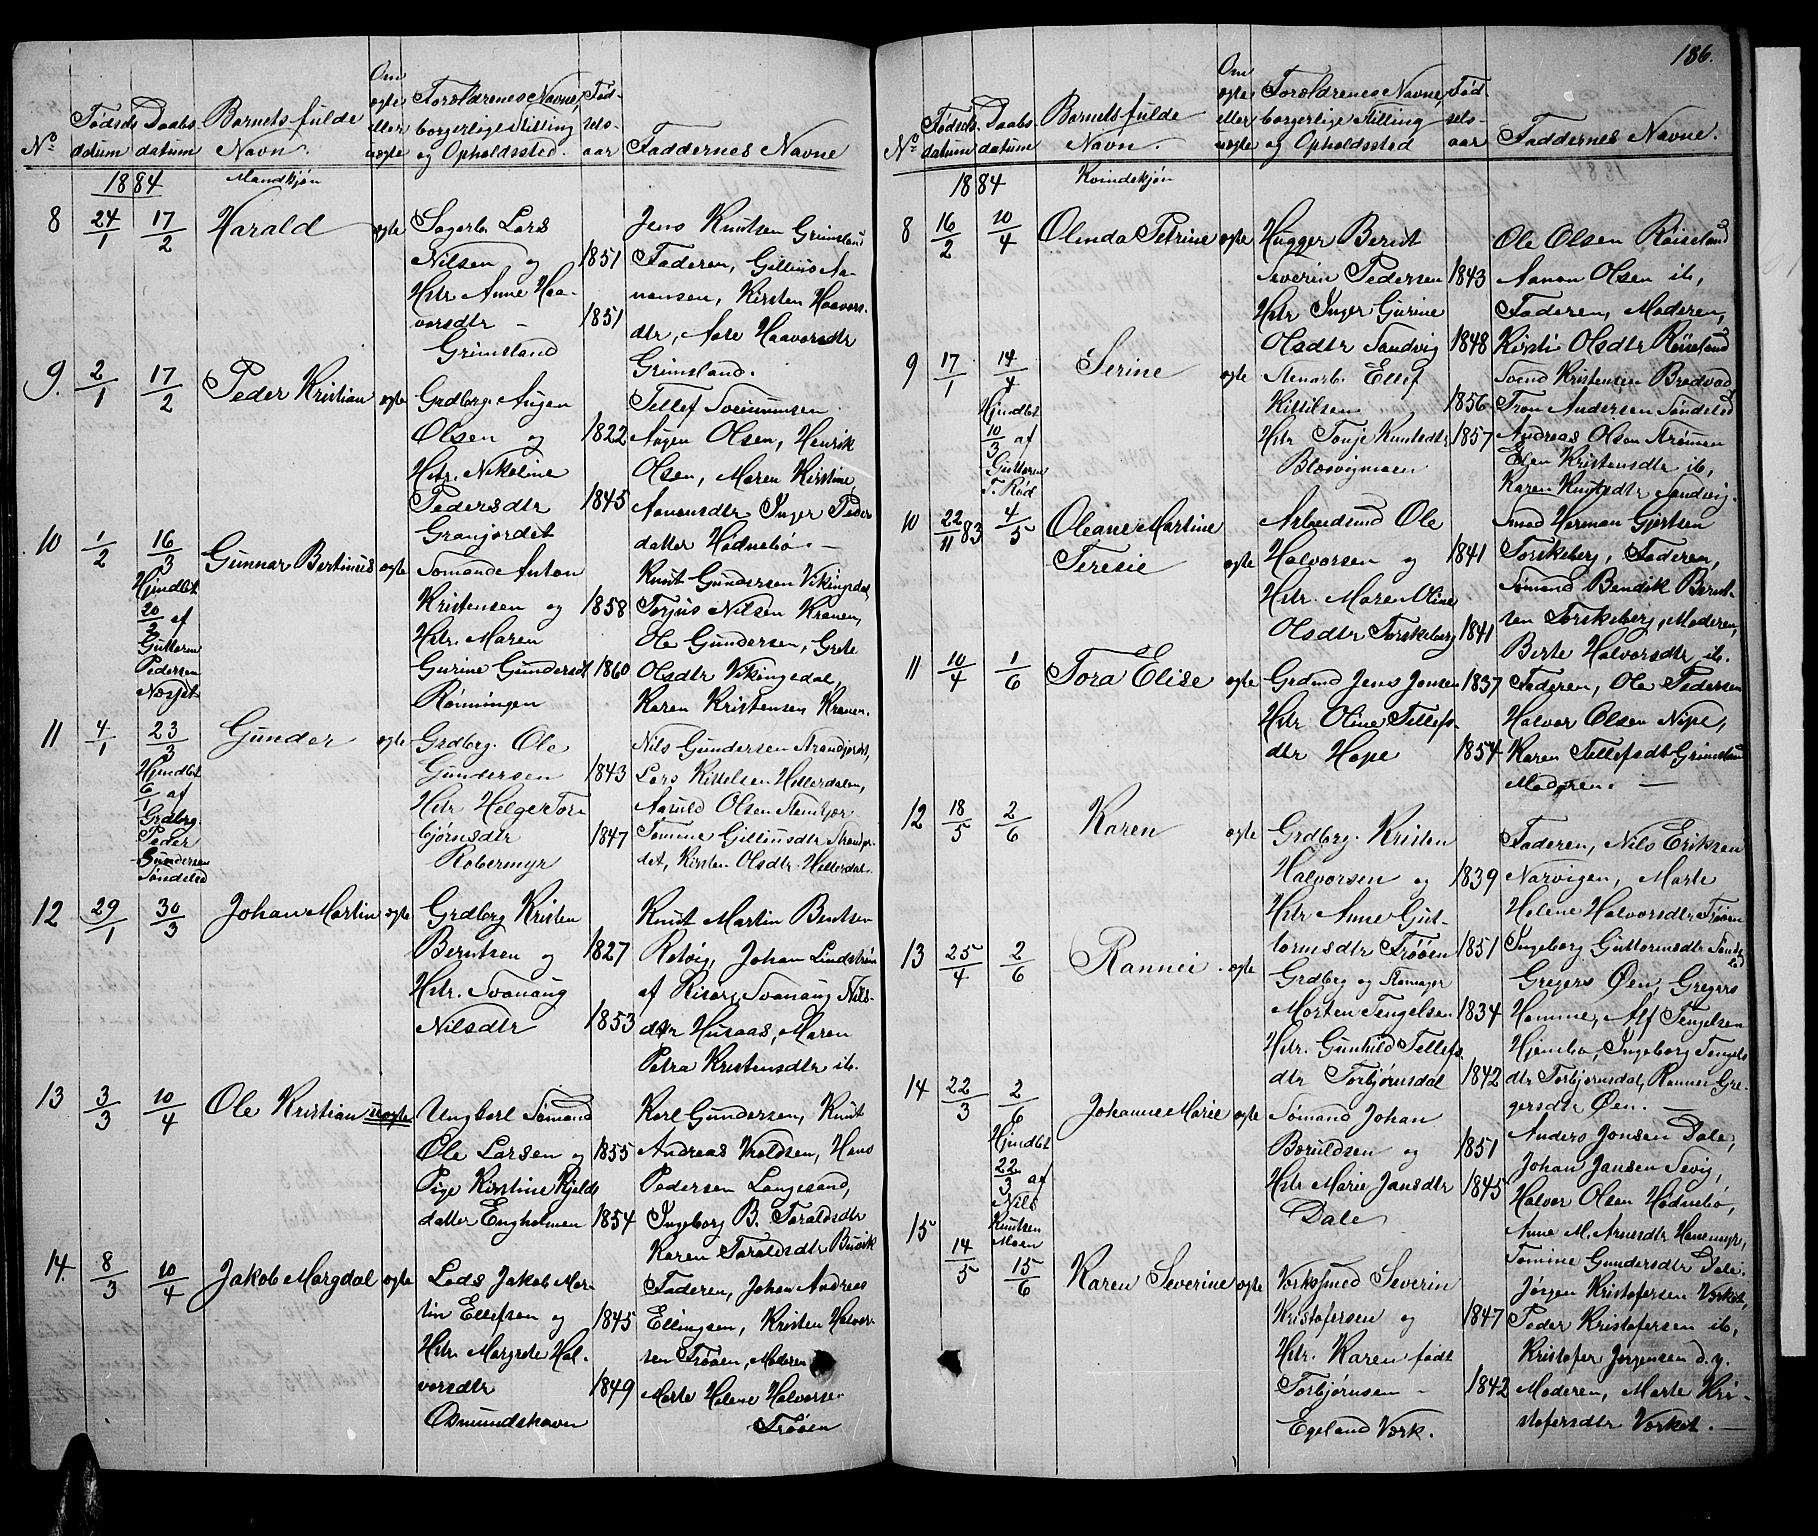 186.
No
Fødsels datum
Daabs datum
Barnets fulde Navn.
Om ægte eller uægte
Forældrenes Navne, borgerlige Stilling og Opholdssted.
Fødselsaar
Faddernes Navne
1884
Mandkjøn
8 24/1 17/2 Harald ægte
Lars
Nilsen og 1851
Hstr. Anne Haa-
vorsdtr - 1851
Grimsland
Jens Knutsen Grimsland
Faderen, Gillius Aa-
nonsen, Kirsten Haavors-
dtr, Aase Haavorsdtr
Grimsland.
9. 2/1 17/2 Peder Kristian ægte
Grdbrg. Augen
Olsen og 1822
Hstr. Nikoline
Pedersdtr 1845
Granjordet
Tellef Sveinunsen
Augen Olsen, Henrik
Olsen, Maren Kirstine
Aanonsdtr Inger Peder
datter Hødnebø. -
10 1/2 16/3 Gunnar Bertinius ægte
Hjmdbt
20/2 af
Guttorm
Pedersen
Sømand Anton
Kristensen og 1858
Hstr. Maren
Gurine Gundersdt 1860
Rønningen
Knut Gundersen Vikingsdal
Torjus Nilsen Kranen,
Ole Gundersen, Grete
Olsdtr Vikingsdal,
Karen Kristensen Kranen.
11 4/1 23/3 Gunder ægte
Hjmdbt
6/1 af
Grdbrg.
Peder
Gundersen
Søndeled
Grdbrg. Ole
Gundersen 1843
Hstr. Helge Tor
bjørnsdtr 1847
Røbermyr
Nils Gundersen
Lars Kittelsen Hellerdalen,
Olsen
Tomine Gilliusdtr
det, Kirsten Olsdtr. Hellerdal.
12 29/1 30/3 Johan Martin ægte
Grdbrg Kristen
Berntsen og 1827
Hstr. Svanaug
Nilsdtr 1853
Knut Martin Berntsen
Johan Lindstrøm
af Risør, Svanaug Nils-
dtr Husaas, Maren
Petra Kristensdtr ib.
13 3/3 10/4 Ole Kristian uægte
Ungkarl Sømand
Ole Larsen og 1855
Pige Kirstine Kjelds
datter Engholmen 1854
Karl Gundersen, Knut
Andreas Hans
Pedersen Langesand,
Ingeborg B. Taraldsdtr
Karen Taraldsdtr Buvik
14. 8/3 10/4 Jakob Margdal ægte
Lods Jakob Mar-
tin Ellefsen og 1845
Hstr. Margrete Hal-
vorsdtr 1849
Osmundshavn
Faderen, Johan Andreas
Ellingsen, Kristen Halvor
sen Trøoen, Moderen
Marte Helene Halvorsen
Trøoen
No
Fødsels datum
Daabs datum
Barnets fulde Navn.
Om ægte eller uægte
Forældrenes Navne, borgerlige Stilling og Opholdssted
Fødselsaar
Faddernes Navne.
1884
Kvindekjøn
8 16/2 10/4 Olinda Petrine ægte
Hugger Berent
Severin Pedersen 1843
Hstr Inger Gurine
Olsdtr Sandvig 1848
Ole Olsen Røiseland
Aanon Olsen ib,
Faderen, Moderen,
Kirsti Olsdtr Røiseland
9 17/1 14/4 Serine ægte
Hjmdbt
10/3 af
Guttorm
T. Rød
Stenarb. Ellef
Kittilsen 1856
Hstr Tonje Knutsdtr 1857
Blesvigmoen
Svend Kristensen Brødvad
Tron Andersen Søndeled
Andreas Olsen Strømmen
Elen Kristensdtr ib,
Karen Knutsdtr Sandvig.
10 22/11 83 4/5 Oleane Martine
Teresie ægte
Arbeidsmd Ole
Halvorsen og 1841
Hstr. Maren Oline
Olsdtr Torskeberg 1841
Smed Herman Gjertsen
Torskeberg, Faderen,
Sømand Bendik Bernt-
sen Torskeberg, Moderen,
Berte Halvorsdtr ib.
11 10/4 1/6 Tora Elise ægte
Grdmd Jens Jensen 1837
Hstr Oline Tellefs-
dtr Hope 1854
Faderen, Ole Pedersen
Halvor Olsen Nipe,
Karen Tellefsdt Grimsland
Moderen. -
12 18/5 2/6 Karen ægte
Grdbrg. Kristen
Halvorsen og 1839
Hstr Anne Gut-
tormsdtr Trøoen 1851
Faderen, Nils Eriksen
Narvigen, Marte
Helene Halvorsdtr Trøoen
Ingeborg Guttormsdtr Sønde
led
13 25/4 2/6 Rannei ægte
Grdbrg og
Morten Tengelsen 1834
Hstr. Gunhild Tellefs
dtr Torbjørnsdal 1842
Gregers Øen, Gregers
Homme, Alf Tengelsen
Hjembø, Ingeborg Tengels
dtr Torbjørnsdal, Rannei Gre-
gersdtr Øen.
14 22/3 2/6 Johanne Marie ægte
Hjmdbt
22/3 af
Nils
Knutsen
Moen
Sømand Johan
Boruldsen og 1851
Hstr Marie Jansdtr 1845
Dale
Anders Jonsen Dale,
Johan Jansen Sevig,
Halvor Olsen Hødnebø,
Anne M. Arnesdtr Hanemyr,
Tomine Gundersdtr Dale.
15 14/5 15/6 Karen Severine ægte
Værksmed Severin
Kristofersen og 1847
Hstr. Karen født
Torbjørnsen - 1842
Egeland Værk.
Jørgen Kristofersen Værket,
Peder Kristofersen ib,
Kristofer Jørgensen d. y.
Moderen, Marte Kri-
stofersdtr Værket. -